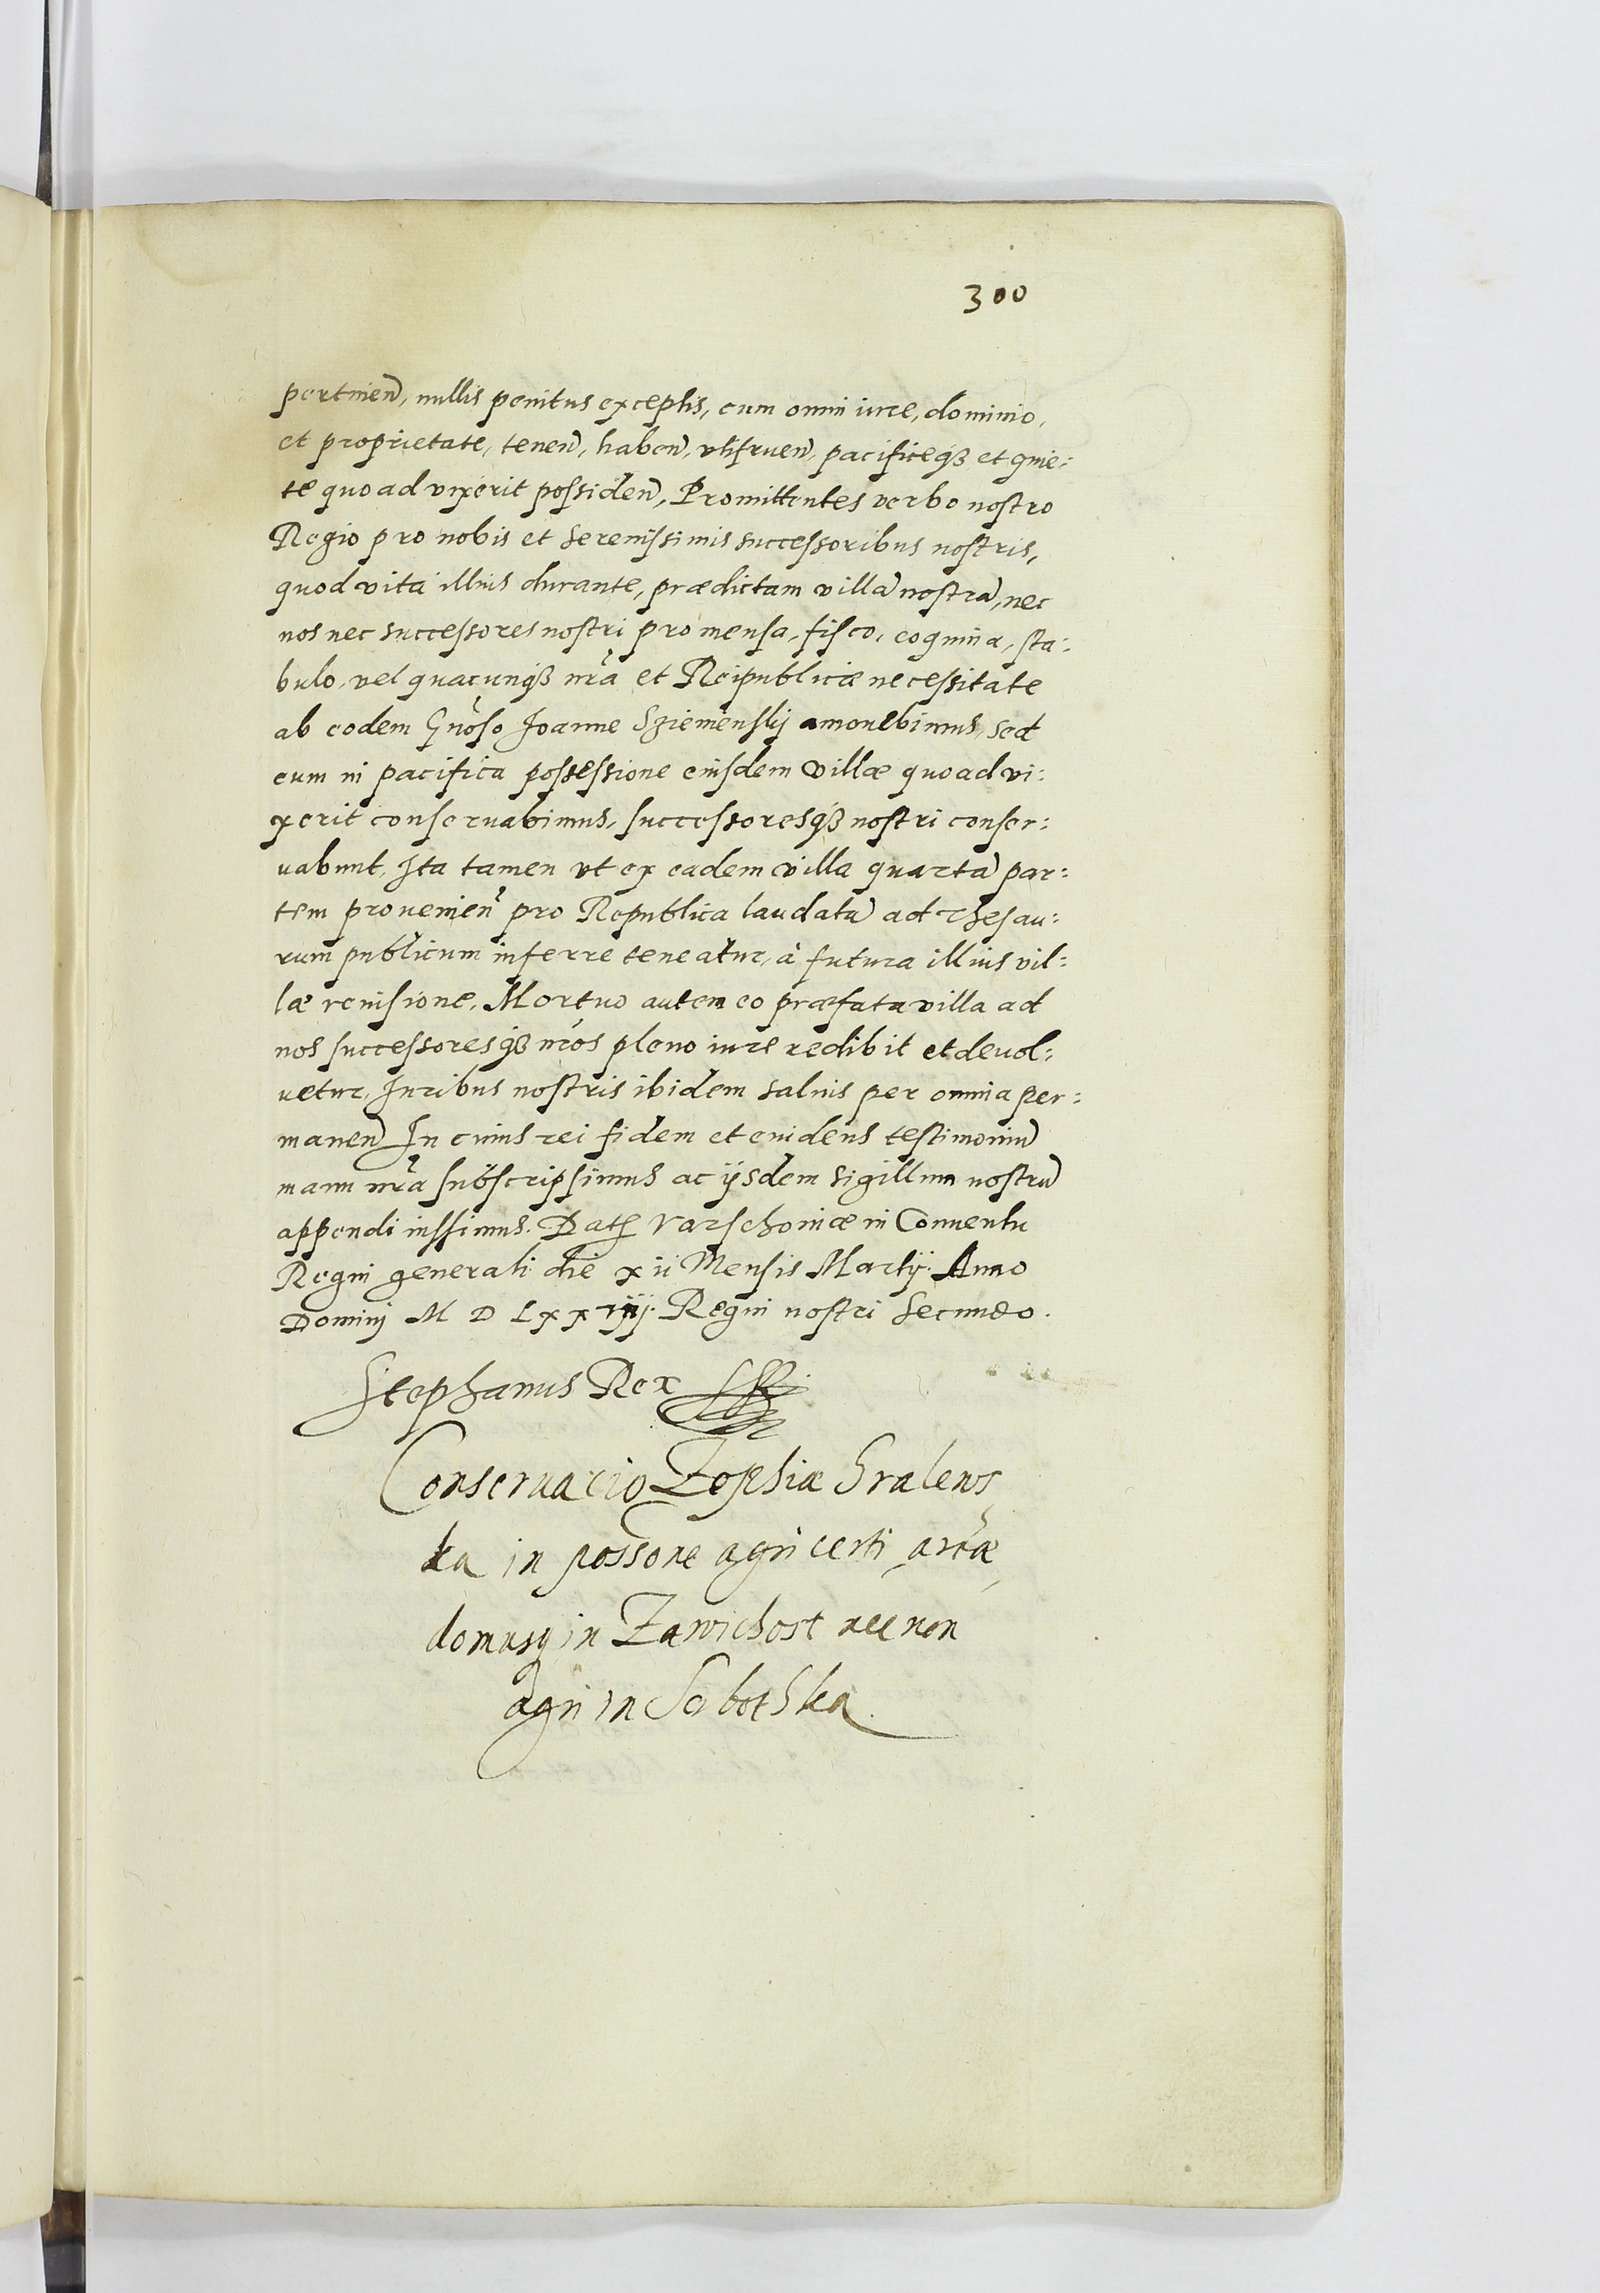 300
pertinen, nullis penitus exceptis, cum omni iure, dominio,
et proprietate, tenen, haben, vtifruen, pacificeqз et quie:
te quoad vixerit possiden, Promittentes verbo nostro
Regio pro nobis et serenissimis successoribus nostris,
quod vita illius durante, prædictam villa nostra, nec
nos nec successores nostri pro mensa, fisco, coquina, sta:
bulo, vel quacunqз nra et Reipublicæ necessitate
ab eodem Gnoso Joanne Sziemienskij amouebimus, sed
eum in pacifica possessione eiusdem villæ quoad vi:
xerit conseruabimus, successoresqз nostri conser:
uabunt, Ita tamen vt ex eadem villa quarta par:
tem prouenien pro Republica laudata ad thesau:
rum publicum inferre teneatur, à futura illius vil:
læ reuisione, Mortuo autem eo præfata villa ad
nos successoresqз nros pleno iure redibit et deuol:
uetur, Iuribus nostris ibidem saluis per omnia per:
manen In cuius rei fidem et euidens testimoniu
manu nra subscripsimus ac ijsdem sigillum nostru
appendi iussimus. Dat Varschouiæ in Conuentu
Regni generali die xii Mensis Martij. Anno
Domini M D Lxxviij. Regni nostri Secundo.
Stephanus Rex
Conseruacio Zophiæ Gralews
ka in possone agri certi aræ
domusq in Zawichost nec non
agri in Sobothka.